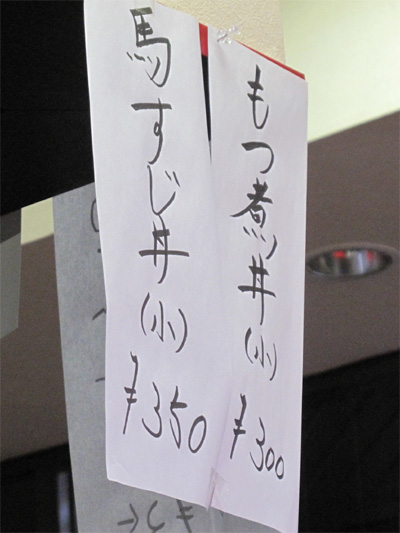 もつ煮丼(小) ¥300
馬すじ丼(小) ¥350